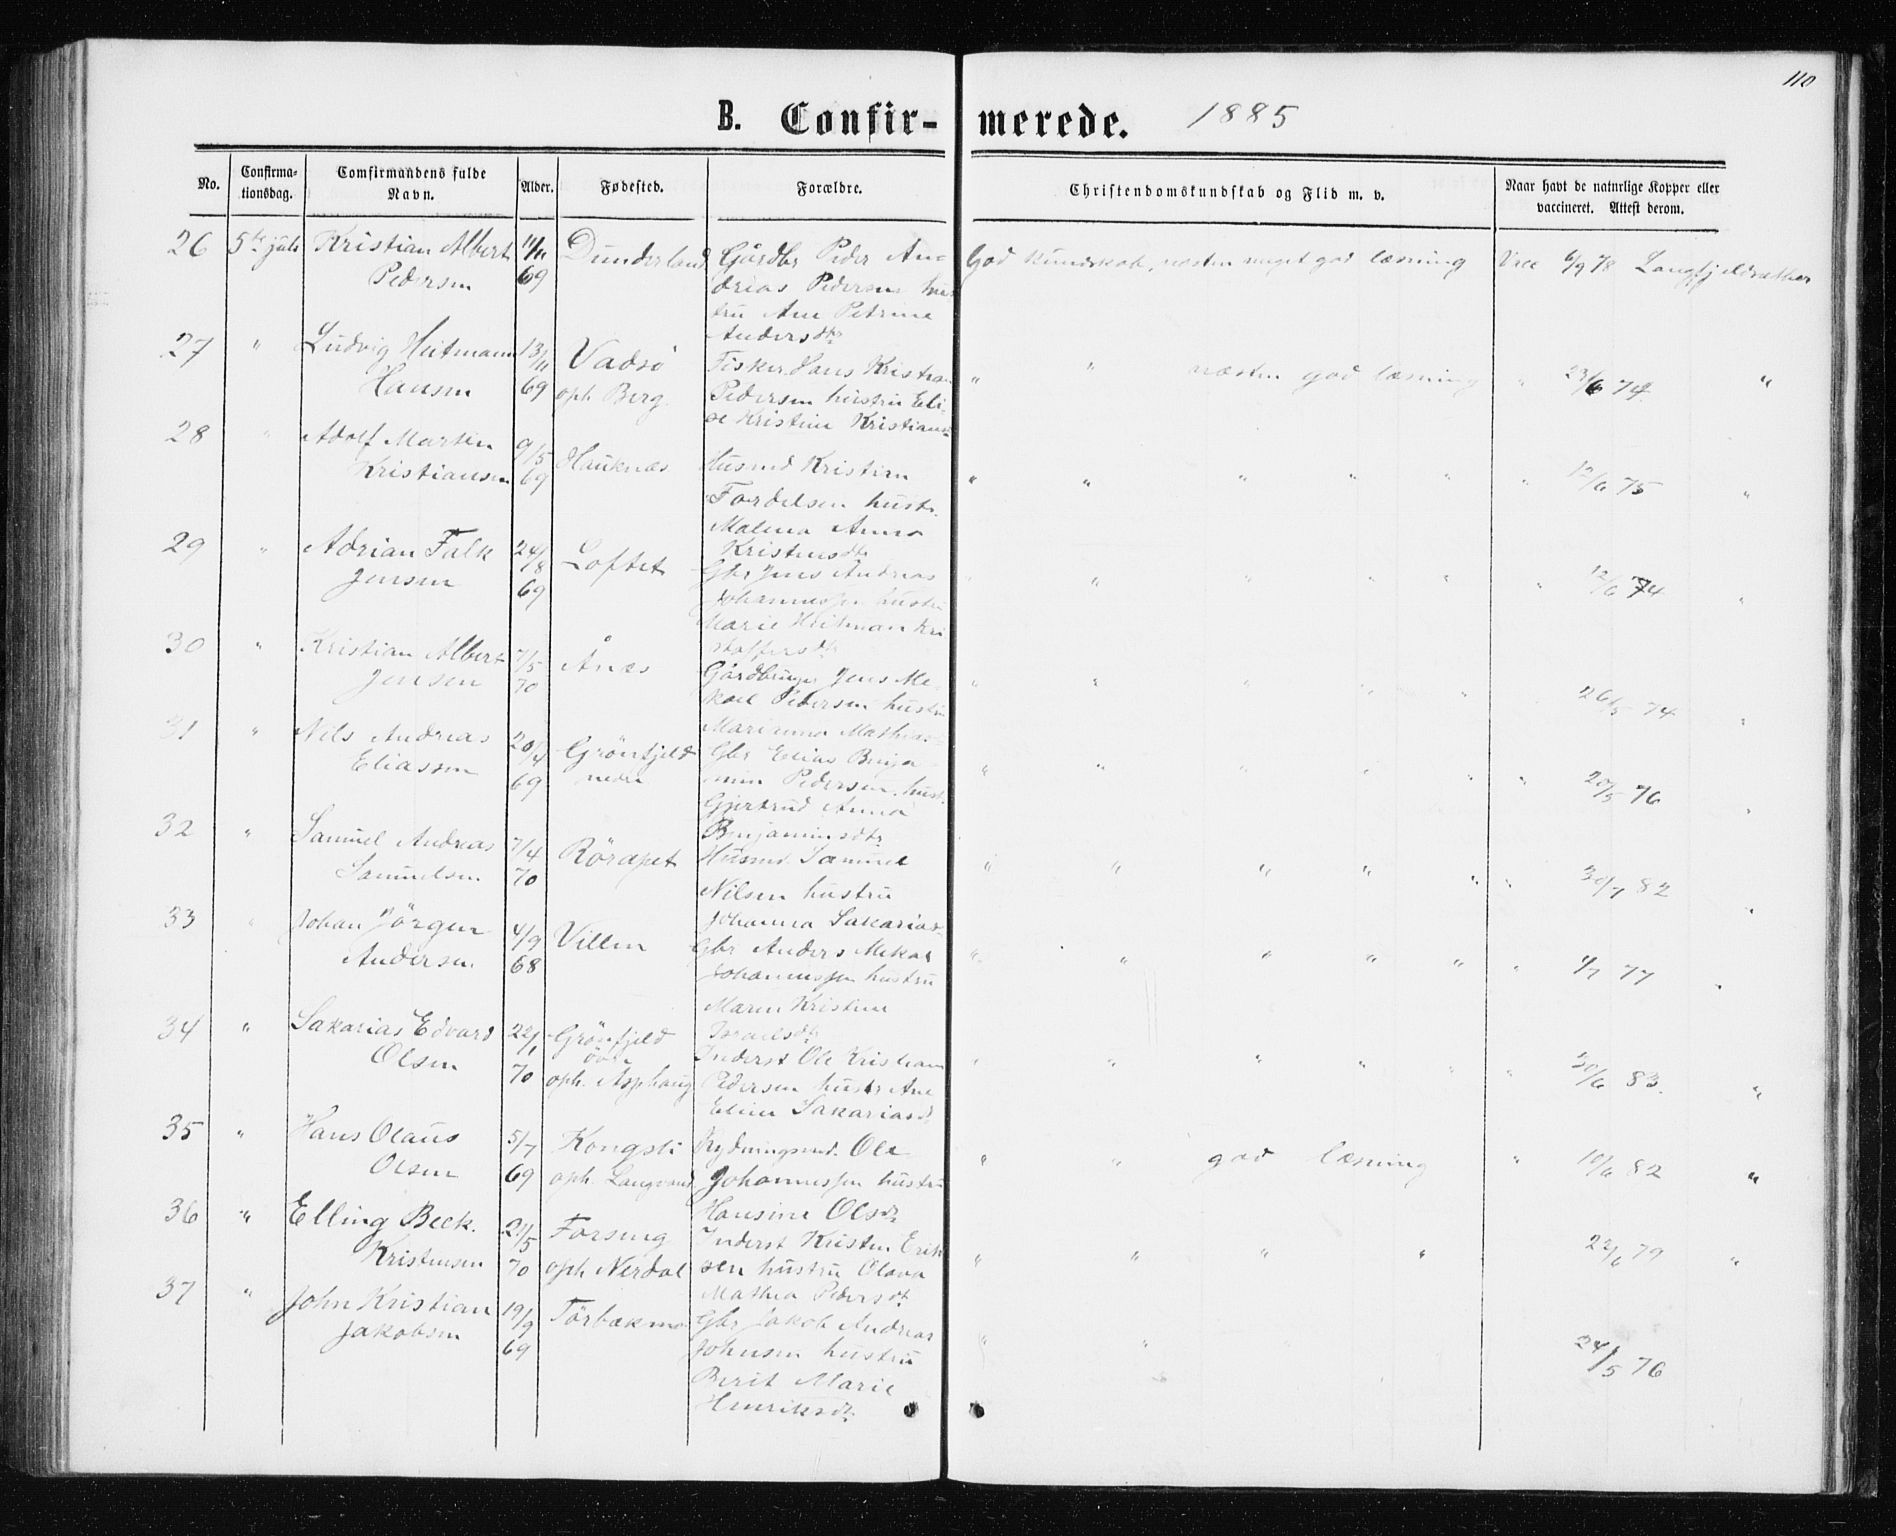 110
B. Confir- merede. 1885
No. Confirma-tionsdag. Comfirmandens fulde Navn. Alder. Fødested. Forældre. Christendomskundskab og Flid m. v. Naar havt de naturlige Kopper eller vaccineret. Attest derom.
26 5te juli Kristian Albert 11/11 Dunderland Gårdbr Peder An- God Kundskab, næsten meget god læsning Vacc 6/9 78 Langfjeldsæther
Pedersen 69 drias Pedersen hus
tru Ane Petrine
Andersdtr
27 " Ludvig Heitmann 13/11 Vadsø Fisker Hans Kristian " " næsten god læsning " 23/6 74 "
Hansen 69 oph. Berg. Pedersen hustru Eli-
se Kristine Kristians-
28 " Adolf Martin 9/5 Hauknæs Husmd Kristian " " " " " " 12/6 75 "
Kristiansen 69 Fordelsen hustr.
Malena Anna
29 " Adrian Falk 24/8 Loftet Kristensdtr
Jensen 69 Gbr Jens Andreas " " " " " " 12/6 74 "
Johannessen hustru
Marie Heitman Kri
30 " Kristian Albert 7/5 Ånæs stoffersdtr
Jensen 70 Gårdbruger Jens Me- " " " " " 26/5 74 "
kael Pedersen hustru
31 " Nils Andreas 20/4 Grönfjeld Marianna Mathias-
Eliassen 69 nedre Gbr Elias Benja- " " " " " " 20/5 76 "
min Pedersen, hust.
Gjertrud Anna
32 " Samuel Andreas 7/4 Röraget Benjaminsdtr
Samuelsen 70 Husmd. Samuel " " " " " " 30/7 82 "
Nilsen hustru
33 " Johan Jörgen 4/9 Villen Johanna Sakarias-
Andersen 68 Gbr Anders Mekal " " " " " " 1/7 77 "
Johannessen hustru
Maren Kristine
34 " Sakarias Edvard 22/1 Grönfjeld Israelsdtr
Olsen 70 övre Inderst Ole Kristian " " " " " " 30/6 83. "
oph. Asphaug Pedersen hustr Ane
Eline Sakariasdt
35 " Hans Olaus 5/7 Kongsli Rydningsmd. Ole " " god læsning " 10/6 82 "
Olsen 69 oph. Langvand Johannessen hustru
36 " Elling Beck. 21/5 Forsmg Hansine Olsdtr
Kristensen 70 oph Nerdal Inderst Kristen Erik " " " " 22/6 79 "
sen hustru Olava
37 " John Kristian 19/9 Törbækmo Mathea Pedersdt
Jakobsen 69 Gbr Jakob Andreas " " 24/5 76
Johnsen hustru
Berit Marie
Henriksdtr